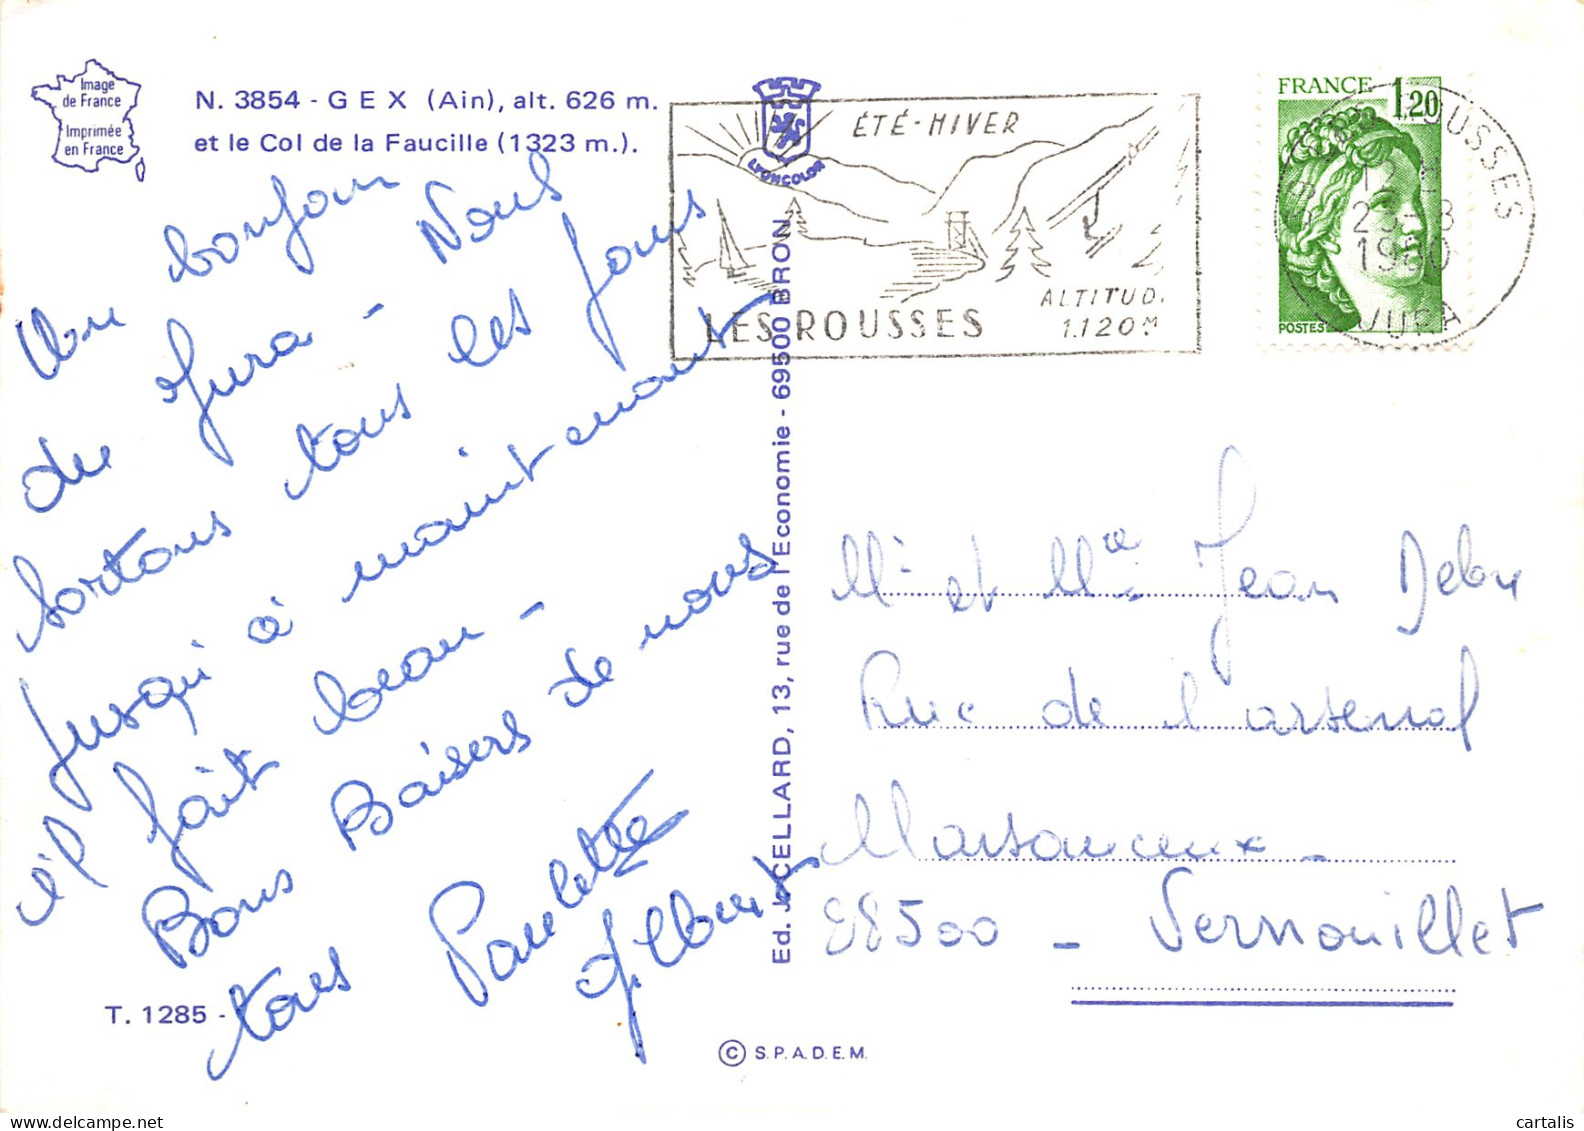 Image
de France
Imprimée
en France
N. 3854 - GEX (Ain), alt. 626 m.
et le Col de la Faucille (1323 m.).
Un bonjour
du Jura - Nous
sortons tous les jours
jusqu'à maintenant
il fait beau -
Bons Baisers de nous
tous Paulette
T. 1285 -
LYONCOLOR
ÉTÉ-HIVER
ALTITUD.
1.120 M
LES ROUSSES
Ed. J. CELLARD, 13, rue de l'Economie - 69500 BRON
© S.P.A.D.E.M.
FRANCE 1,20
POSTES
ROUSSES
12 H
1980
JURA
Mr et Me Jean
Rue de l'arsenal
Marsauceux -
28500 - Vernouillet
cartalis